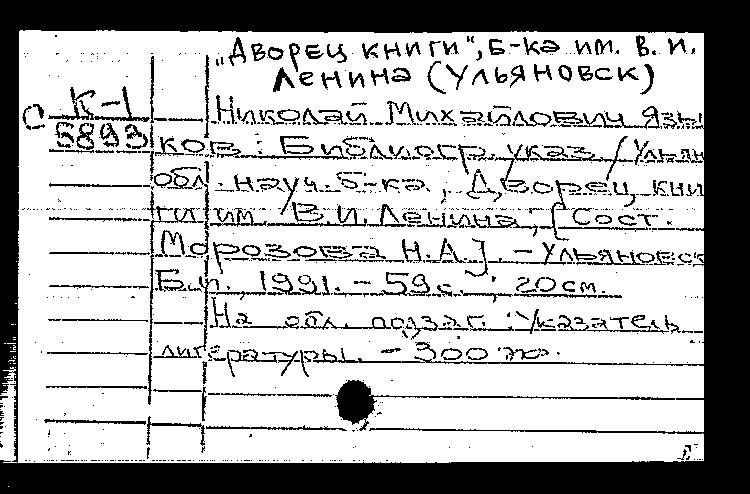 „Дворец книги", б-ка им. В. И.
Ленина (Ульяновск)
К-1
5893
Николай Михайлович Язы
ков : Библиогр. указ. / Ульян
обл. науч. б-ка, Дворец кни
ги им. В.И. Ленина; [Сост.
Морозова Н.А.]. - Ульяновск
Б.и., 1991. - 59 с. ; 20 см.
На обл. подзаг.: Указатель
литературы. - 300 экз.